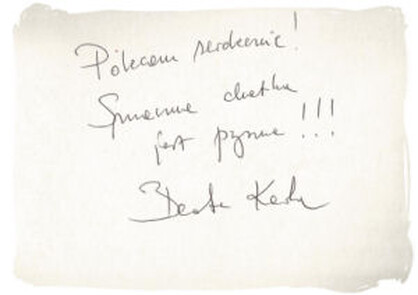 Polecam serdecznie!
Smaczna chatka
jest pyszna !!!
Beata